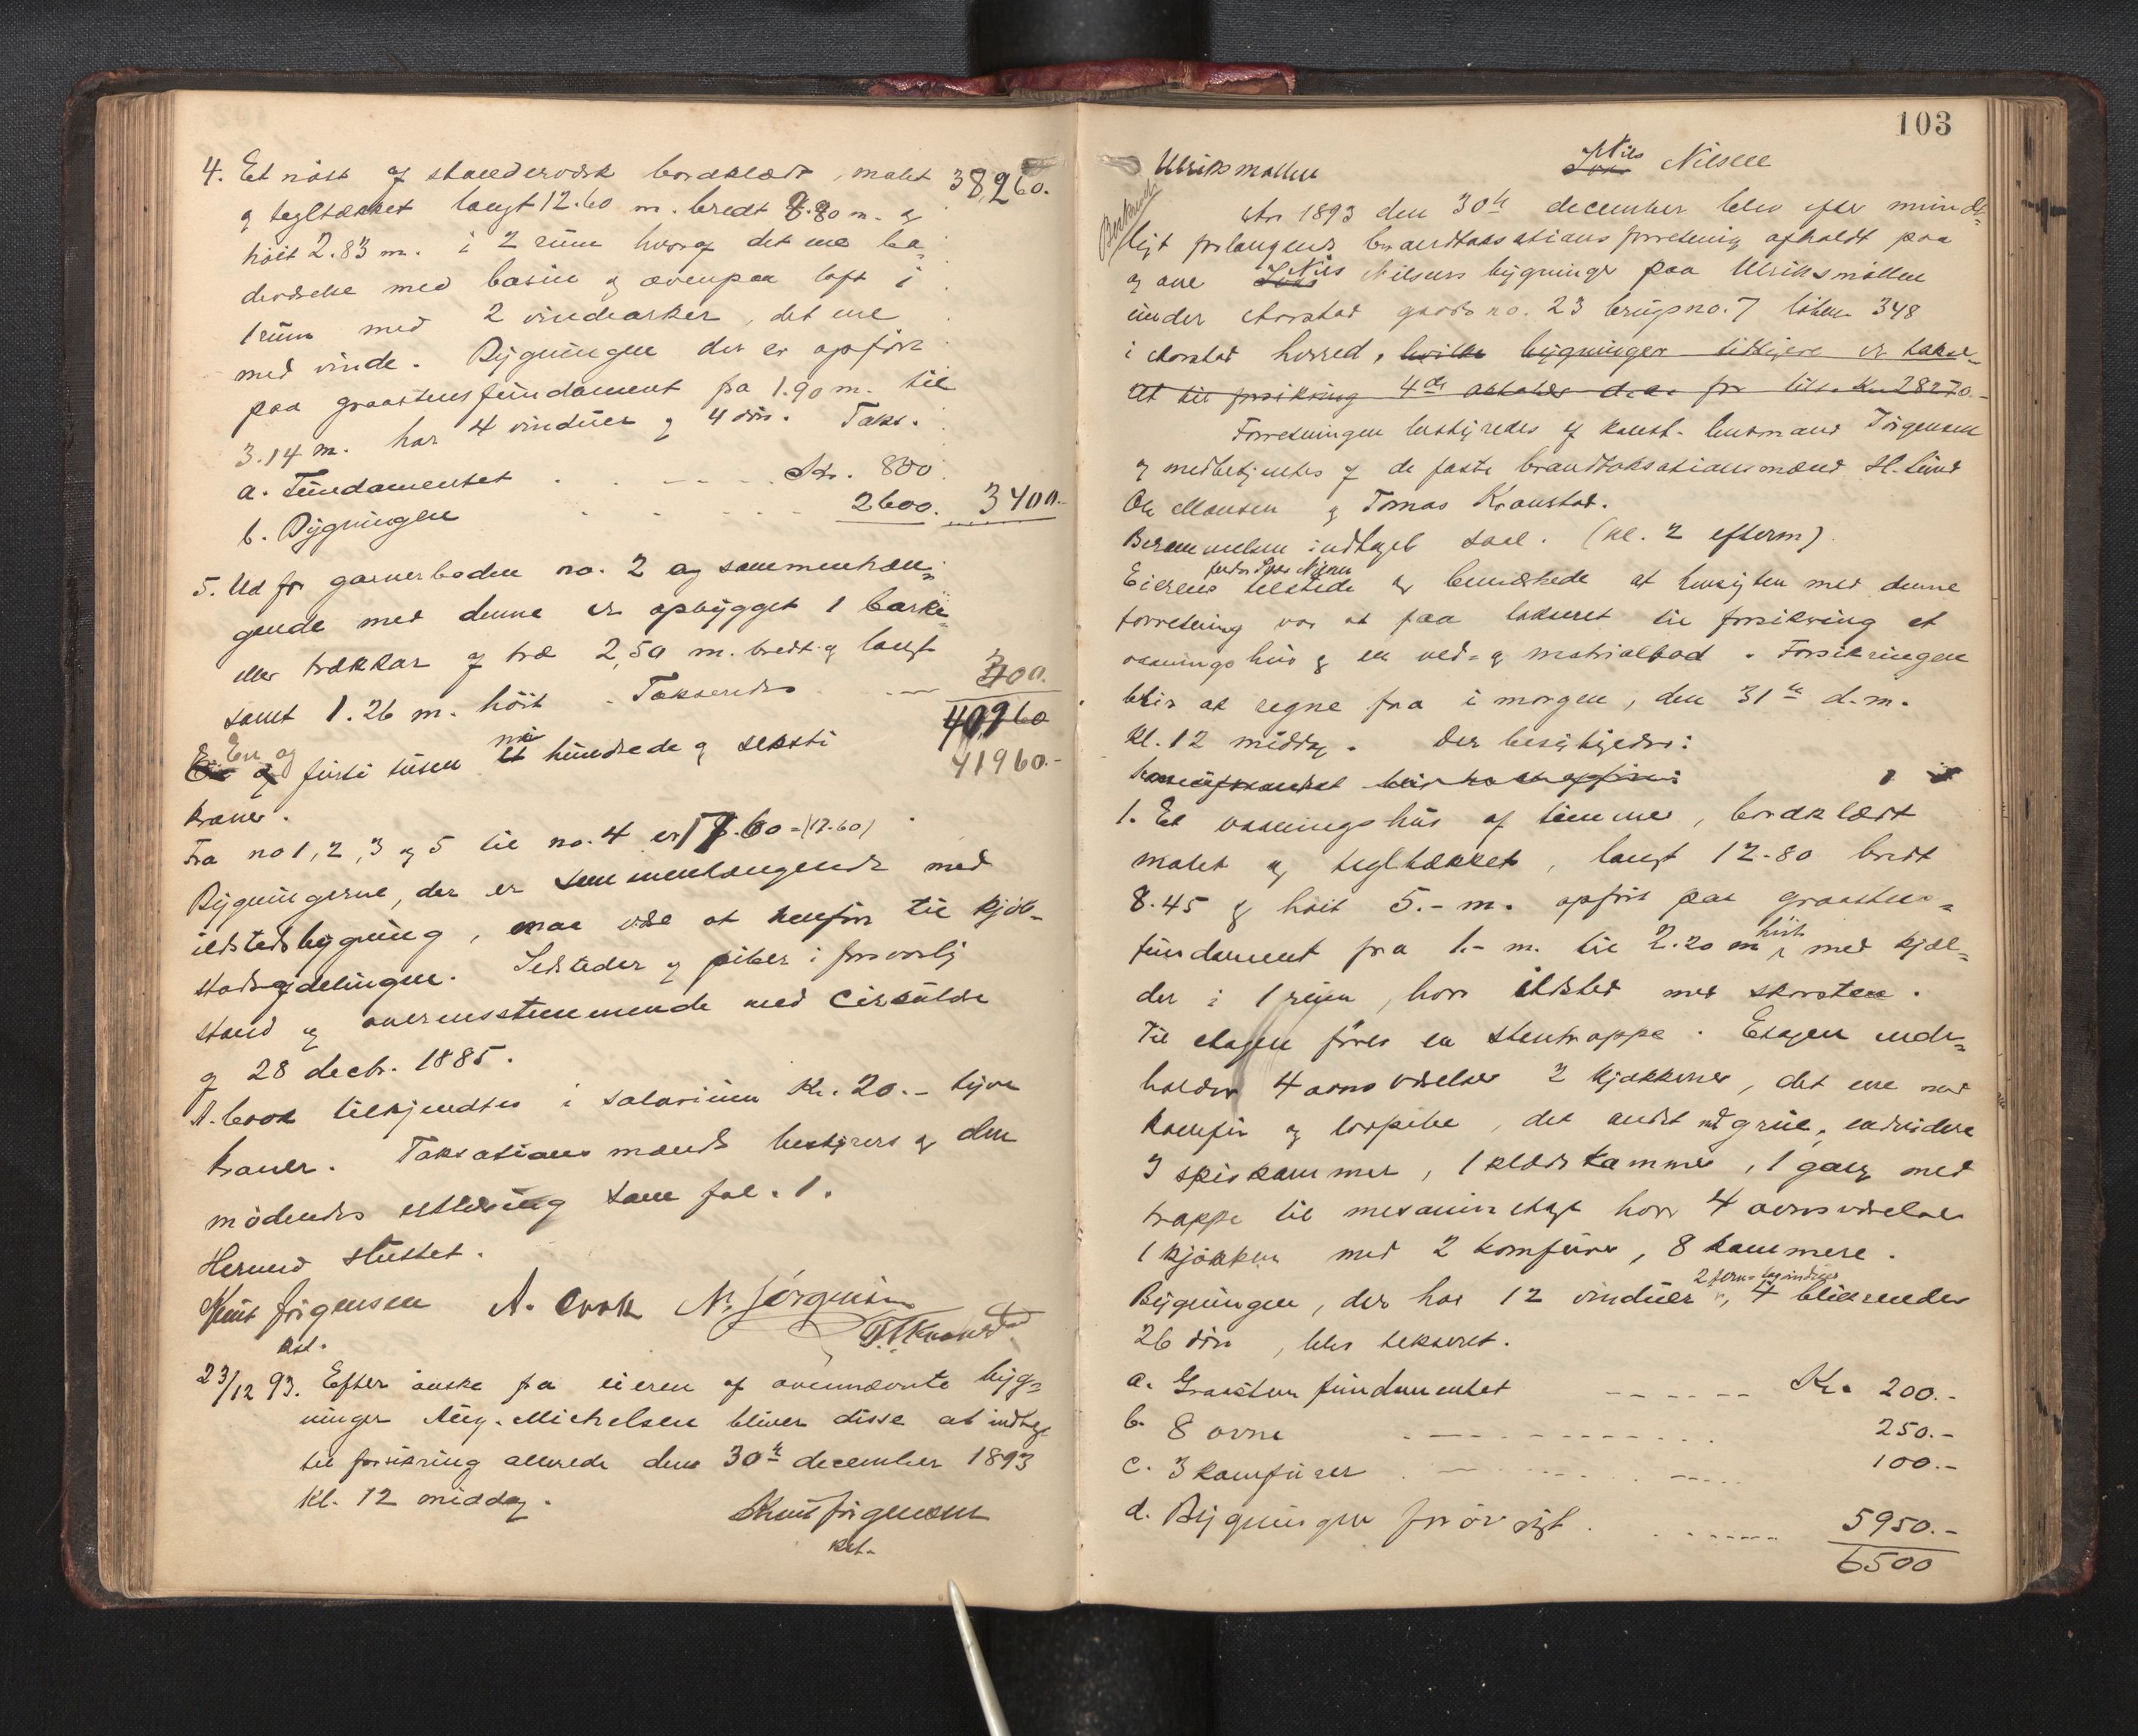 4. Et nøst af stænderværk bordklædt, malet 38,260.
og tegltækket langt 12.60 m. bredt 8.80 m. og
høit 2.83 m. i 2 rum hvoraf det ene be-
værelse med basin og ovenpaa loft i
1 rum med 2 vindearker, det ene
med vinde. Bygningen der er opført
paa graastensfundament fra 1.90 m. til
3.14 m. har 4 vinduer og 4 døre. Takst.
a. Fundamentet Kr. 800
b. Bygningen 2600. 3400.-
5. Ud for garverboden no. 2 og sammenhæn-
gende med denne er opbygget 1 barke
eller trækkar af træ 2,50 m. bredt og langt
samt 1.26 m. høit. Takseredes 300.
40,960
En og førti tusen ni hundrede og seksti 41960.-
kroner.
Fra no 1, 2, 3 og 5 til no. 4 er 17.60 = (17.60)
Bygningerne, der er sammenhængende med
ildstedsbygning, maa være at henføre til kjøb-
stadsafdelingen. Ildsteder og piber i forsvarlig
stand og overensstemmende med Cirkulære
af 28 decbr. 1885.
A. Crook tilkjendtes i salarium Kr. 20.- tyve
kroner. Taksationsmænds bestyrers og den
mødendes erklæring som fol. 1.
Hermed sluttet.
Knut Jørgensen A. Crook N. Jørgensen
kst. T. Kronstad
23/12 93. Efter ønske fra eieren af ovennævnte byg-
ninger Aug. Michelsen bliver disse at indtage
til forsikring allerede den 30te december 1893
Kl. 12 middag.
Knut Jørgensen
kst.
103
Ulriksmøllen Jens Nils Nilsen
Beskrevet
Aar 1893 den 30te december blev efter mundt-
ligt forlangende brandtaksationsforretning afholdt paa
og over Jens Nils Nilsens bygninger paa Ulriksmøllen
under Aarstad gaards no. 23 brugs no. 7 løben 348
i Aarstad herred, hvilke bygninger tidligere er takse-
ret til forsikring 4de oktober d.a. for tils. Kr. 28270.-
Forretningen bestyredes af konst. lensmand Jørgensen
og medbetjentes af de faste brandtaksationsmænd H. Lund
Ole Monsen og Tomas Kronstad.
Berammelsen indtaget saal. (kl. 2 efterm)
Eierens fader Nilsen tilstede og bemærkede at hensigten med denne
forretning var at faa takseret til forsikring et
vaaningshus og en ved- og matrialbod. Forsikringen
blir at regne fra i morgen, den 31te d.m.
kl. 12 middag. Der besigtigedes:
1. Et vaaningshus af tømmer, bordklædt
malet og tegltækket, langt 12.80 bredt
8.45 og høit 5.- m. opført paa graastens-
fundament fra 1.- m. til 2.20 m høit, med kjæl-
der i 1 rum, hvor ildsted med skorsten.
Til etagen fører en stentrappe. Etagen inde-
holder 4 ovnsværelser 2 kjøkkener, det ene med
komfur og torpibe, det andet med grue, endvidere
3 spiskammer, 1 klædekammer, 1 gang med
trappe til mesaninetage hvor 4 ovnsværelser
1 kjøkken med 2 komfurer, 8 kammere.
Bygningen, der har 12 vinduer, 2 ferns tagvinduer, 4 blikrender
26 døre, blev takseret.
a. Graastensfundamentet Kr. 200.-
b. 8 ovne 250.-
c. 3 komfurer 100.-
d. Bygningen forøvrigt 5950.-
6500